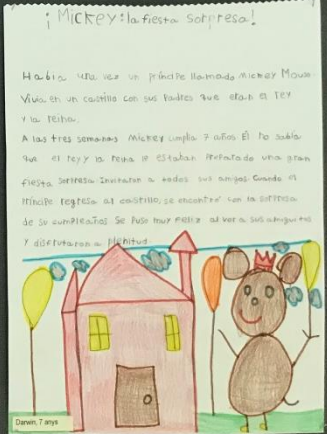 ¡Mickey: la fiesta sorpresa!
Había una vez un príncipe llamado Mickey Mouse.
Vivía en un castillo con sus Padres que eran el rey
y la reina.
A las tres semanas Mickey cumplia 7 años. Él no sabía
que el rey y la reina le estaban Preparado una gran
fiesta sorpresa. Invitaron a todos sus amigos. Cuando el
Príncipe regresa al castillo, se encontró con la sorpresa
de su cumpleaños. Se puso muy feliz al ver a sus amiguitos
y disfrutaron a plenitud.
Darwin, 7 anys